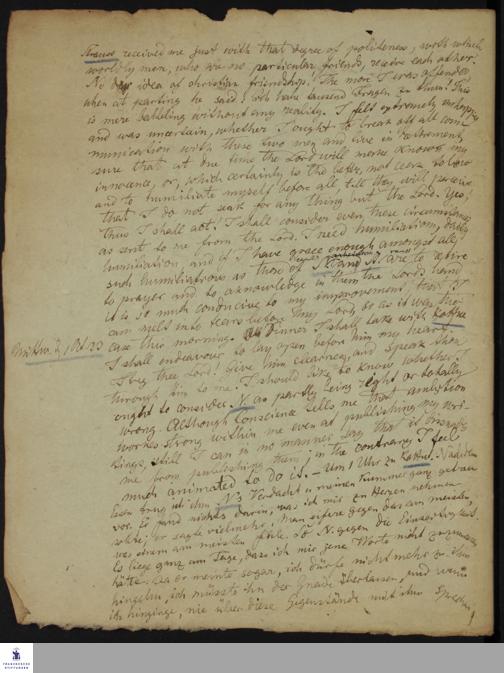 Strauss received me just with that degree of politeness, with which
worldly men, who are no particular friends, receive each other.
No idea of christian friendship! The more I was offended
when at parting he said: ich habe tausend Fragen zu thun. This
is mere babbling without any reality. I felt extremely unhappy
and was uncertain, whether I ought to break off all com-
munication with these two men and live in retirement,
sure that at one time the Lord will make known my
innocence, or, which certainly is the better, not cease to bow
and to humiliate myself before all, till they will perceive
that I do not seek for any thing but the Lord. Yes,
thus I shall act! I shall consider even these circumstances
as sent to me from the Lord. I need humiliation, daily
humiliation, and if I have grace enough amongst all
such humiliations as those of St. and N. are to retire
to prayer and to acknowledge in them the Lords hand
it is so much conducive to my improvement, that I
can melt into tears before my Lord, so as it was the
case this morning. At Dinner I shall talk with Kottw.
Mittw. d. 1 Oct. 23
I shall endeavour to lay open before him my heart.
I beg thee Lord! give him clearness, and speak thou
through him to me. I should like to know whether I
ought to consider N. as partly being right or totally
wrong. Although Conscience tells me that ambition
works strong within me even at publishing my wri-
tings, still I can in no manner say that it
me from publishing them, in the contrary I feel
much animated to do it. – Um 1 Uhr zu Kottw. Nach dem
Essen trug ich ihm N's Verdacht u meinen Kummer ganz getreu
vor. Er fand nichts darin, was ich mir zu Herzen nehmen
solle, er sagte vielmehr: Man eifere gegen das am meisten,
was einem am meisten fehle. So N. gegen die
Es liege ganz am Tage, dass ich mir jene Worte nicht zu
hätte. Ja er meinte sogar, ich dürfe nicht mehr zu ihm
hingehn, ich müsste ihn der Gnade überlassen, und wenn
ich hinginge, nie über diese Gegenstände mit ihm sprechen
FRANCKESCHE
STIFTUNGEN